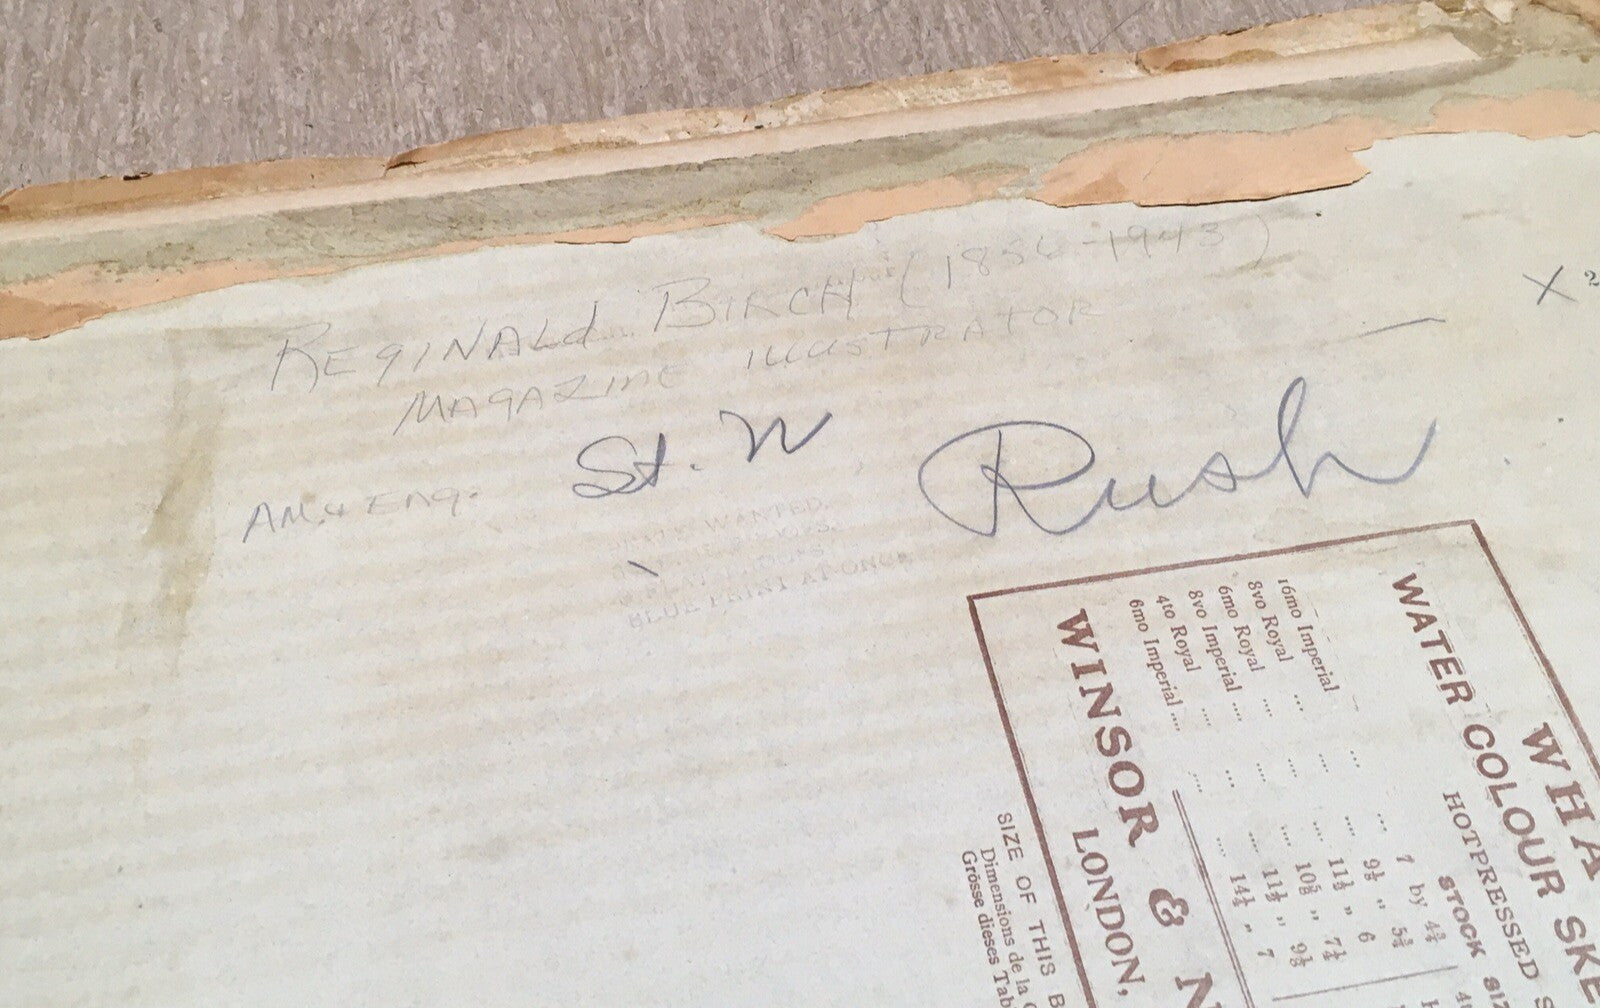 REGINALd BIRCH (1856-1943)
MAGAZINE ILLUSTRATOR
X 2
AM. & ENG. St. N Rush
WANTED.
BLUE PRINT AT ONCE
WHA
WATER COLOUR SKE
HOTPRESSED S
STOCK SIZ
16mo Imperial .... ... ... 7 by 4¾
8vo Royal ... ... ... 9½ " 5¾
6mo Royal .... .... .... 11½ " 6
8vo Imperial .... .... .... 10⅝ " 7¼
4to Royal .... ... .... 11½ " 9⅜
6mo Imperial .... .... .... 14¼ " 7
WINSOR & N
LONDON,
SIZE OF THIS B
Dimensions de la
Grösse dieses Tab